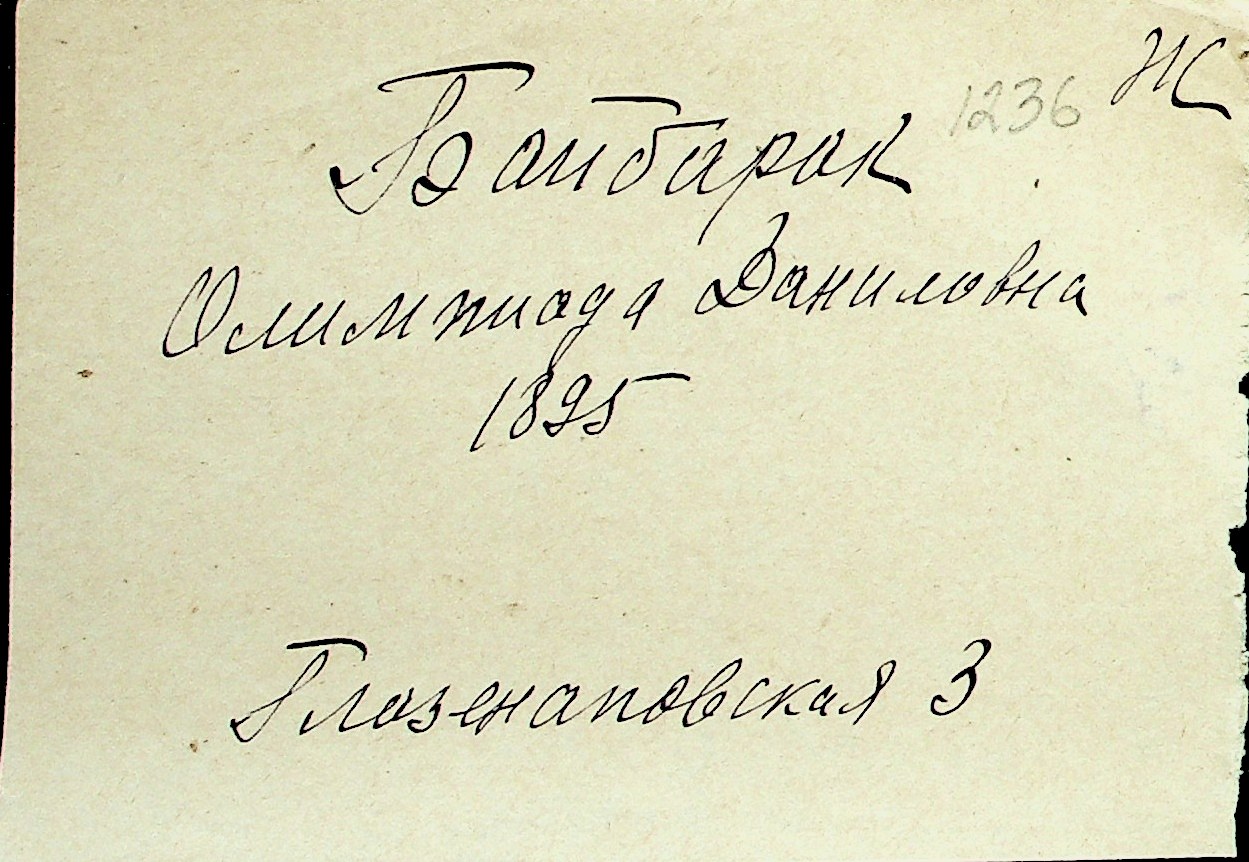 1236 Ж
Байбарак
Олимпиада Даниловна
1895
Глазенаповская 3